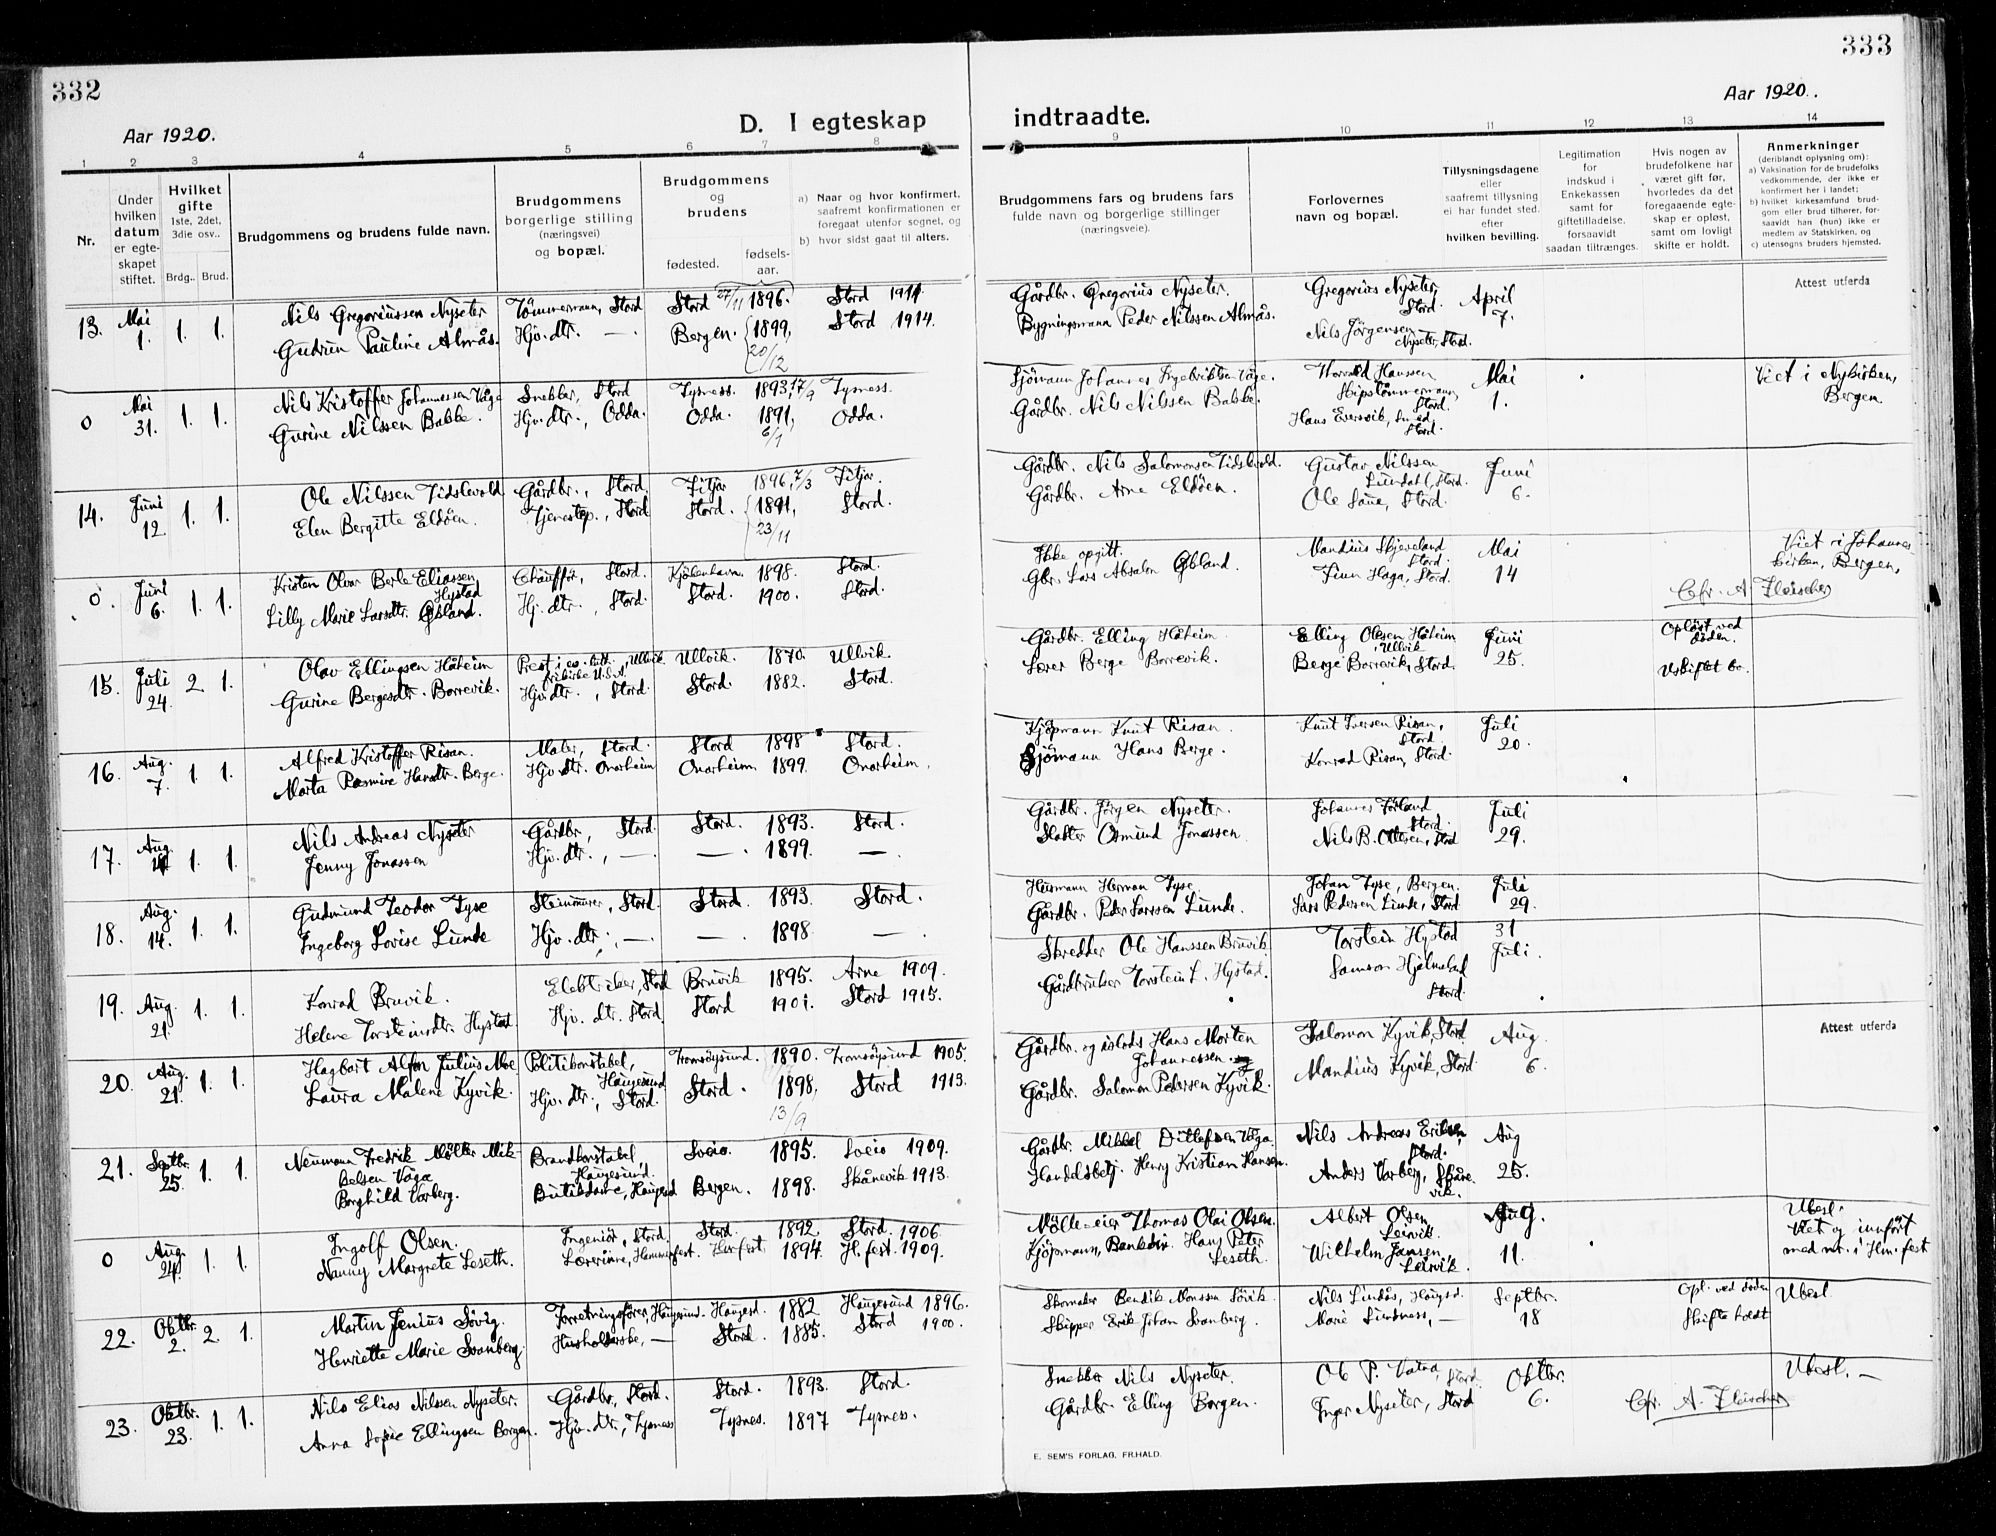 332
Aar 1920.
D. I egteskap
1 2 3 4 5 6 7 8
Nr.
Under hvilken datum er egte-skapet stiftet.
Hvilket gifte
1ste, 2det, 3die osv..
Brdg.. Brud.
Brudgommens og brudens fulde navn.
Brudgommens borgerlige stilling (næringsvei) og bopæl.
Brudgommens og brudens
fødested.
fødsels-aar.
a) Naar og hvor konfirmert, saafremt konfirmationen er foregaat utenfor sognet, og
b) hvor sidst gaat til alters.
13. Mai 1. 1. 1. Nils Gregoriussen Nyseter Tømmermann, Stord Stord 27/11 1896. Stord 1911
Gudrun Pauline Almås. Hjv. dtr. — Bergen. 1899, 20/12 Stord 1914.
0 Mai 31. 1. 1. Nils Kristoffer Johannessen Våge Snekker, Stord Tysness. 1893, 17/9 Tysness.
Gurine Nilssen Bakke. Hjv. dtr., Odda. Odda. 1891, 6/1 Odda.
14. Juni 12 1. 1. Ole Nilssen Tidslevold Gårdbr., Stord. Fitjar 1896, 7/3 Fitjar.
Elen Bergitte Eldøen. Tjenestep., Stord Stord. 1891, 23/11 Stord.
0. Juni 6. 1. 1. Kristen Olvar Berle Eliassen Hystad Chauffør, Stord. Kjøbenhavn. 1898. Stord.
Lilly Marie Larsdtr. Øbland. Hj. dtr., Stord Stord. 1900. Stord.
15. Juli 24. 2. 1. Olav Ellingsen Håheim Prest i ev. luth. frikirke U.S.A., Ullvik Ullvik. 1870. Ullvik.
Gurine Bergesdtr. Borrevik. Hjv. dtr., Stord. Stord. 1882. Stord.
16. Aug. 7. 1. 1. Alfred Kristoffer Risan. Maler, Stord. Stord 1898 Stord.
Marta Rasmine Hansdtr. Berge. Hjv. dtr. Onarheim Onarheim. 1899. Onarheim.
17. Aug. 14 1. 1. Nils Andreas Nyseter Gårdbr, Stord. Stord. 1893. Stord.
Jenny Jonassen Hjv. dtr., — — . 1899. — .
18. Aug. 14. 1. 1. Gudmund Teodor Tyse Steinmurer, Stord. Stord. 1893. Stord.
Ingeborg Lovise Lunde Hjv. dtr., — — . 1898 — .
19. Aug. 21. 1. 1. Konrad Bruvik. Elektriker, Stord Bruvik 1895. Arne 1909.
Helene Torsteinsdtr. Hystad. Hjv. dtr. Stord. Stord 1901. Stord 1915.
20. Aug. 21. 1. 1. Hagbart Alfon Julius Moe Politikonstabel, Haugesund Tromsøysund. 1890. Tromsøysund 1905.
Laura Malene Kyvik. Hjv. dtr., Stord. Stord. 1898, 13/9 Stord 1913.
21. Septbr. 25. 1. 1. Neumann Fredrik Møller Mik-kelsen Våga Brandkonstabel, Haugesund. Sveio. 1895. Sveio 1909.
Borghild Varberg. Butikdame, Haugesund Bergen. 1898. Skånevik 1913.
0 Aug. 24. 1. 1. Ingolf Olsen. Ingeniør, Stord. Stord. 1892. Stord. 1906.
Nanny Margrete Leseth. Lærerinne, Hammerfest. 1894. H.fest. 1909.
22. Oktbr. 2. 2. 1. Martin Jenius Søvig. Forretningsfører, Haugesund. Haugesd. 1882. Haugesund 1896.
Henriette Marie Svanberg. Husholderske, — Stord. 1885. Stord 1900.
23. Oktbr. 23. 1. 1. Nils Elias Nilssen Nyseter. Gårdbr, Stord. Stord. 1893. Stord.
Anna Sofie Ellingsen Borgen. Hjv. dtr., Tysness Tysnes. 1897 Tysnes.
333
Aar 1920.
indtraadte.
9 10 11 12 13 14
Brudgommens fars og brudens fars fulde navn og borgerlige stillinger (næringsveie).
Forlovernes navn og bopæl.
Tillysningsdagene eller saafremt tillysning ei har fundet sted. efter hvilken bevilling.
Legitimation for indskud i Enkekassen samt for giftetilladelse, forsaavidt saadan tiltrænges.
Hvis nogen av brudefolkene har været gift før, hvorledes da det foregaaende egte-skap er opløst, samt om lovligt skifte er holdt.
Anmerkninger (deriblandt oplysning om):
a) Vaksination for de brudefolks vedkommende, der ikke er konfirmert her i landet;
b) hvilket kirkesamfund brud-gom eller brud tilhører, for-saavidt han (hun) ikke er medlem av Statskirken, og
c) utensogns bruders hjemsted.
Gårdbr. Gregorius Nyseter. Gregorius Nyseter, Stord. April 7. Attest utferda
Bygningsmann Peder Nilssen Almås. Nils Jørgensen Nyseter, Stord.
Sjømann Johannes Ingebriktsen Våge. Thorvald Hanssen Skipstømmermann, Stord. Mai 1. Viet i Nykirken, Bergen.
Gårdbr. Nils Nilssen Bakke. Hans Eversvik, Smed, Stord.
Gårdbr. Nils Salomonsen Tidslevold. Gustav Nilssen Lundahl, Stord. Juni 6.
Gårdbr. Arne Eldøen. Ole Saue, Stord.
Ikke opgitt. Mandius Skjeveland Stord. Mai 14 Viet i Johannes-kirken, Bergen,
Gbr. Lars Absalon Øbland. Finn Haga, Stord. Cfr. A. Fleischer
Gårdbr. Elling Håheim. Elling Olesen Håheim, Ullvik Juni 25. Opløst ved døden.
Lærer Berge Borrevik. Berge Borrevik, Stord. Uskiftet bo.
Kjøpmann Knut Risan. Knut Iversen Risan, Stord Juli 20.
Sjømann Hans Berge. Konrad Risan, Stord.
Gårdbr. Jørgen Nyseter. Johannes Førland Stord. Juli 29.
Slakter Osmund Jonassen. Nils B. Ottesen, Stord
Husmann Herman Tyse. Johan Tyse, Bergen. Juli 29.
Gårdbr. Peder Larssen Lunde. Lars Pedersen Lunde, Stord
Skredder Ole Hanssen Bruvik. Torstein Hystad 31 Juli.
Gårdbruker Torstein L. Hystad. Samson Hjelmeland Stord.
Gårdbr. og Hans Morten Johannessen. Salomon Kyvik, Stord Aug. 6. Attest utferda
Gårdbr. Salomon Pedersen Kyvik. Mandius Kyvik, Stord
Gårdbr. Mikkel Ditlefsen Våga. Nils Andreas Eriksen, Stord. Aug 25.
Handelsbetj. Henry Kristian Hansen. Anders Varberg, Skåne-vik.
Mølle-eier Thomas Olai Olsen. Albert Olsen Leirvik. Aug. 11. Ubesl.
Kjøpmann, Bankdir. Hans Peter Leseth. Wilhelm Jansen, Leirvik. Viet og innført med nr. i Hm.fest
Skomaker Bendik Monssen Søvik. Nils Lindås, Haugsd. Septbr. 18 Opl. ved døden Ubesl.
Skipper Erik Johan Svanberg. Marie Sundness, — Skifte holdt
Snekker Nils Nyseter. Ole P. Vatna, Stord Oktbr. 6. Ubesl. —
Gårdbr. Elling Borgen. Inger Nyseter, Stord Cfr. A. Fleischer
E. SEM'S FORLAG, FR.HALD.